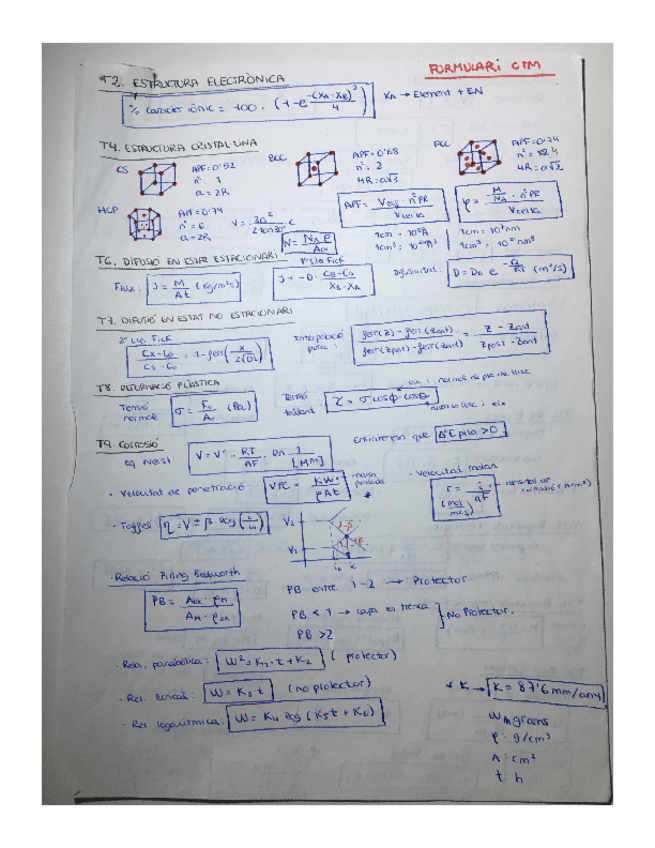 FORMULARI CTM
T2. ESTRUCTURA ELECTRÒNICA
% caràcter iònic = 100 · (1-e^(-(XA-XB)²/4)) XA → Element + EN
T4. ESTRUCTURA CRISTAL·LINA
CS APF=0'52 n°: 1 a=2R
BCC APF=0'68 n°: 2 4R=a√3
FCC APF=0'74 n°: 4 4R=a√2
HCP APF=0'74 n°=6 a=2R
APF = · n°PR / Vcel·la
ρ = M/NA · n°PR / Vcel·la
N = NA ρ /
1cm = 10⁸Å 1cm = 10⁷nm
1cm³ = 10²⁴Å³ 1cm³ = 10²¹nm³
T6. DIFUSIÓ EN ESTAT ESTACIONARI 1ª Llei Fick
Flux: J = M/At (Kg/m²s) J = -D · CB-CA / XB-XA D = D0 e^(-Q/RT) (m²/s)
T7. DIFUSIÓ EN ESTAT NO ESTACIONARI
2ª Llei Fick
Cx-C0 / Cs-C0 = 1-ferr(x/2√Dt)
Interpolació para: ferr(z)-ferr(zant) / ferr(zpost)-ferr(zant) = z-zant / zpost-zant
T8. DEFORMACIÓ PLÀSTICA
Tensió normal σ = F0/A0 (Pa) Tensió tallant: τ = σ cosφ · cosθ
T9. Corrosió
Eq Nerst V = V° - RT/nF · Ln 1/[Mⁿ⁺] Ens interessa que Δ°E pila >0
· Velocitat de penetració: VPC = KW/ρAt massa perduda *
· Velocitat molar r = i/nF (mol/m²s) densitat de corrosió (A/m²)
· Taffel η = V ± β log (i/i0)
V2
V1
i0
· Relació Piling Bedworth
PB = Aox · ρM / AM · ρox
PB entre 1-2 → Protector
PB < 1 → capa es trenca
PB >2
No Protector.
· Rela. parabòlica: W² = K1·t + K2 (protector)
· Rel. lineal: W = K3 t (no protector)
· Rel logarítmica: W = K4 log (K5t + K6)
* K → K = 87'6 mm/any
W grams
ρ: g/cm³
A: cm²
t: h